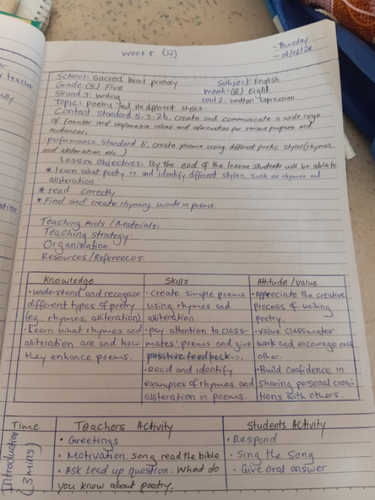 Week 8 (12)
- Thursday
School: Sacred Heart primary
Subject: English
Grade: (5) Five
Week: (8) Eight
Strand 3: Writing
Unit 2: Written Expression
Topic: Poetry and its different styles.
Content Standard 5.3.2b. create and communicate a wide range
of familiar and unfamiliar ideas and information for various purposes and
audiences.
performance Standard b: create poems using different poetic styles (rhymes,
and alliteration, etc.)
Lesson Objectives: By the end of the lesson students will be able to
* learn what poetry is and identify different styles, such as rhymes and
alliteration
* read correctly
* Find and create rhyming words in poems
Teaching Aids / Materials:
Teaching strategy:
Organization:
Resources/References:
Knowledge
• understand and recognise
different types of poetry
(eg, rhymes, alliteration)
• Learn what rhymes and
alliteration are and how
they enhance poems.
Skills
• Create simple poems
using rhymes and
alliteration.
• pay attention to class-
mates' poems and give
positive feedback.
• Read and identify
examples of rhymes and
alliteration in poems.
Attitude / Value
• Appreciate the creative
process of writing
poetry.
• value classmates'
work and encourage each
other.
• Build confidence in
sharing personal crea-
tions with others.
Time
Teachers Activity
Students Activity
Introduction
(3 mins)
• Greetings
• Motivation: song read the bible
• Ask Lead up question. What do
you know about poetry.
• Respond
• Sing the Song
• Give Oral answer